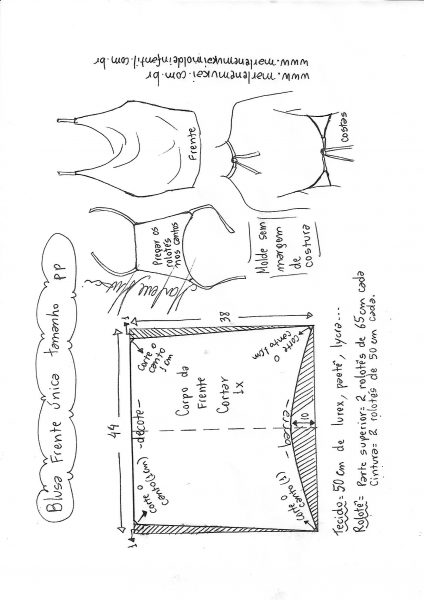 Blusa Frente única tamanho PP
www.marlenemukai.com.br
www.marlenemukaimoldeinfantil.com.br
Frente
costas
Pregar os
rolotês
nos cantos
Molde sem
margem
de
costura
44
38
1
1
-decote-
Corte o
canto
1cm
Corte o
canto (1cm)
Corpo da
Frente
Cortar
1x
-barra-
10
Corte o
canto 1cm
corte o
canto (1)
Tecido= 50 cm de lurex, paetê, lycra...
Rolotê= Parte superior= 2 rolotês de 65 cm cada
Cintura= 2 rolotês de 50 cm cada.